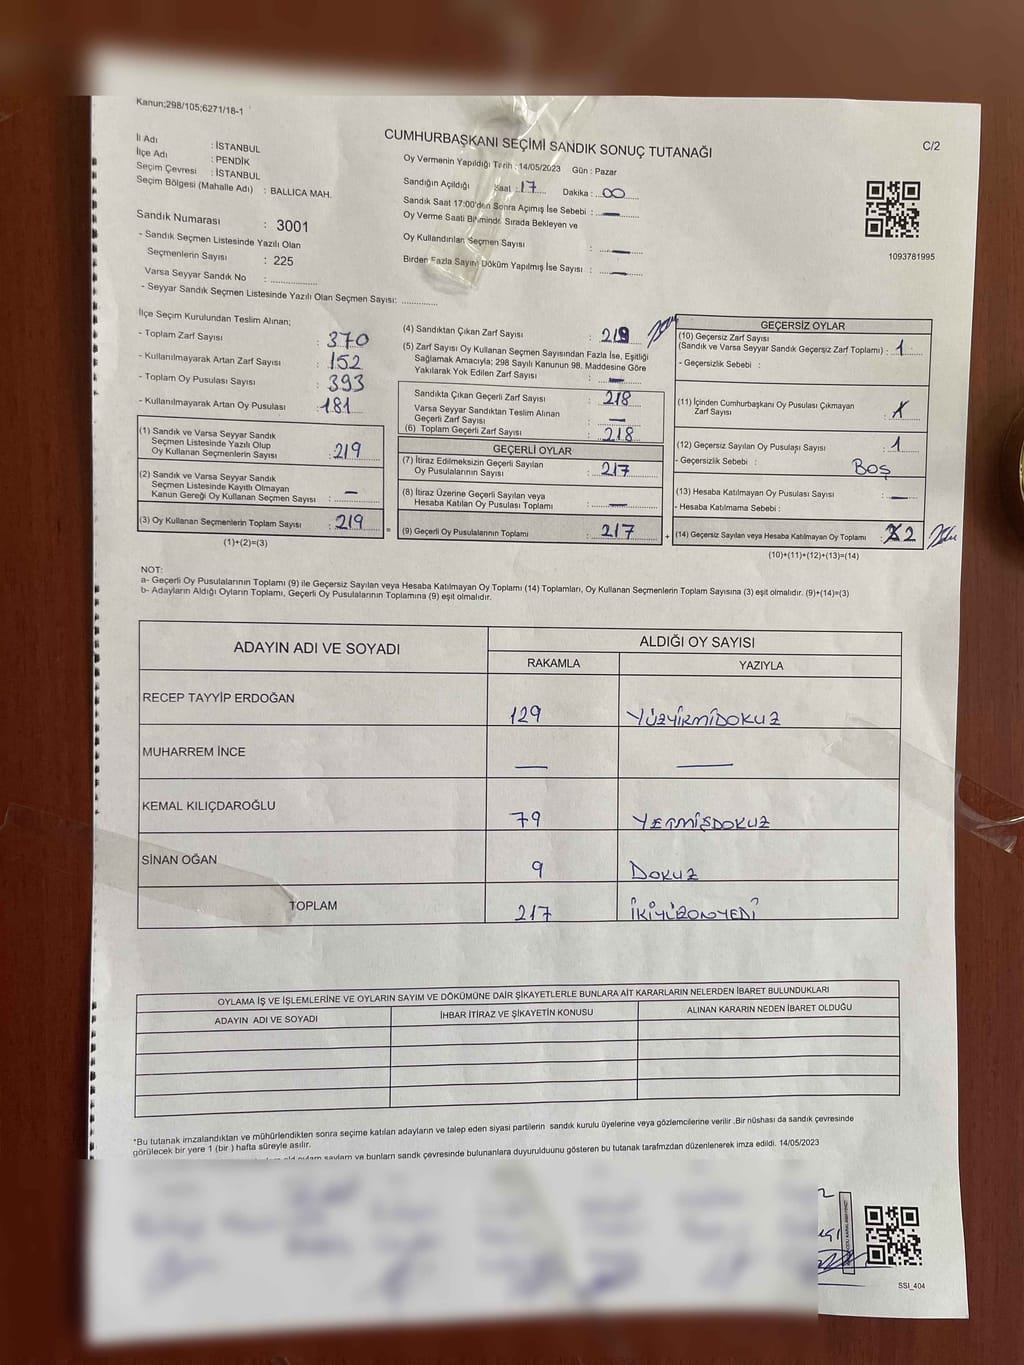 Kanun;298/105;6271/18-1
CUMHURBAŞKANI SEÇİMİ SANDIK SONUÇ TUTANAĞI
C/2
İl Adı : İSTANBUL
İlçe Adı : PENDİK
Seçim Çevresi : İSTANBUL
Seçim Bölgesi (Mahalle Adı) : BALLICA MAH.
Sandık Numarası : 3001
- Sandık Seçmen Listesinde Yazılı Olan
Seçmenlerin Sayısı : 225
Varsa Seyyar Sandık No :
- Seyyar Sandık Seçmen Listesinde Yazılı Olan Seçmen Sayısı:
Oy Vermenin Yapıldığı Tarih : 14/05/2023 Gün : Pazar
Sandığın Açıldığı Saat : 17 Dakika : 00
Sandık Saat 17:00'den Sonra Açımış İse Sebebi : —
Oy Verme Saati Bitiminde Sırada Bekleyen ve
Oy Kullandırılan Seçmen Sayısı : —
Birden Fazla Sayım Döküm Yapılmış İse Sayısı : —
1093781995
İlçe Seçim Kurulundan Teslim Alınan;
- Toplam Zarf Sayısı : 370
- Kullanılmayarak Artan Zarf Sayısı : 152
- Toplam Oy Pusulası Sayısı : 393
- Kullanılmayarak Artan Oy Pusulası : 181
(1) Sandık ve Varsa Seyyar Sandık
Seçmen Listesinde Yazılı Olup
Oy Kullanan Seçmenlerin Sayısı : 219
(2) Sandık ve Varsa Seyyar Sandık
Seçmen Listesinde Kayıtlı Olmayan
Kanun Gereği Oy Kullanan Seçmen Sayısı : —
(3) Oy Kullanan Seçmenlerin Toplam Sayısı : 219
(1)+(2)=(3)
(4) Sandıktan Çıkan Zarf Sayısı : 219
(5) Zarf Sayısı Oy Kullanan Seçmen Sayısından Fazla İse, Eşitliği
Sağlamak Amacıyla; 298 Sayılı Kanunun 98. Maddesine Göre
Yakılarak Yok Edilen Zarf Sayısı : —
Sandıkta Çıkan Geçerli Zarf Sayısı : 218
Varsa Seyyar Sandıktan Teslim Alınan
Geçerli Zarf Sayısı : —
(6) Toplam Geçerli Zarf Sayısı : 218
GEÇERLİ OYLAR
(7) İtiraz Edilmeksizin Geçerli Sayılan
Oy Pusulalarının Sayısı : 217
(8) İtiraz Üzerine Geçerli Sayılan veya
Hesaba Katılan Oy Pusulası Toplamı : —
= (9) Geçerli Oy Pusulalarının Toplamı : 217
GEÇERSİZ OYLAR
(10) Geçersiz Zarf Sayısı
(Sandık ve Varsa Seyyar Sandık Geçersiz Zarf Toplamı) : 1
- Geçersizlik Sebebi :
(11) İçinden Cumhurbaşkanı Oy Pusulası Çıkmayan
Zarf Sayısı : X
(12) Geçersiz Sayılan Oy Pusulası Sayısı : 1
- Geçersizlik Sebebi : BOŞ
(13) Hesaba Katılmayan Oy Pusulası Sayısı : —
- Hesaba Katılmama Sebebi :
+ (14) Geçersiz Sayılan veya Hesaba Katılmayan Oy Toplamı : 2
(10)+(11)+(12)+(13)=(14)
NOT:
a- Geçerli Oy Pusulalarının Toplamı (9) ile Geçersiz Sayılan veya Hesaba Katılmayan Oy Toplamı (14) Toplamları, Oy Kullanan Seçmenlerin Toplam Sayısına (3) eşit olmalıdır. (9)+(14)=(3)
b- Adayların Aldığı Oyların Toplamı, Geçerli Oy Pusulalarının Toplamına (9) eşit olmalıdır.
ADAYIN ADI VE SOYADI ALDIĞI OY SAYISI
RAKAMLA YAZIYLA
RECEP TAYYİP ERDOĞAN 129 YÜZYİRMİDOKUZ
MUHARREM İNCE — —
KEMAL KILIÇDAROĞLU 79 YETMİŞDOKUZ
SİNAN OĞAN 9 DOKUZ
TOPLAM 217 İKİYÜZONYEDİ
OYLAMA İŞ VE İŞLEMLERİNE VE OYLARIN SAYIM VE DÖKÜMÜNE DAİR ŞİKAYETLERLE BUNLARA AİT KARARLARIN NELERDEN İBARET BULUNDUKLARI
ADAYIN ADI VE SOYADI İHBAR İTİRAZ VE ŞİKAYETİN KONUSU ALINAN KARARIN NEDEN İBARET OLDUĞU
*Bu tutanak imzalandıktan ve mühürlendikten sonra seçime katılan adayların ve talep eden siyasi partilerin sandık kurulu üyelerine veya gözlemcilerine verilir .Bir nüshası da sandık çevresinde
görülecek bir yere 1 (bir ) hafta süreyle asılır.
ve bunların sandık çevresinde bulunanlara duyurulduunu gösteren bu tutanak tarafmzdan düzenlenerek imza edildi. 14/05/2023
SSI_404